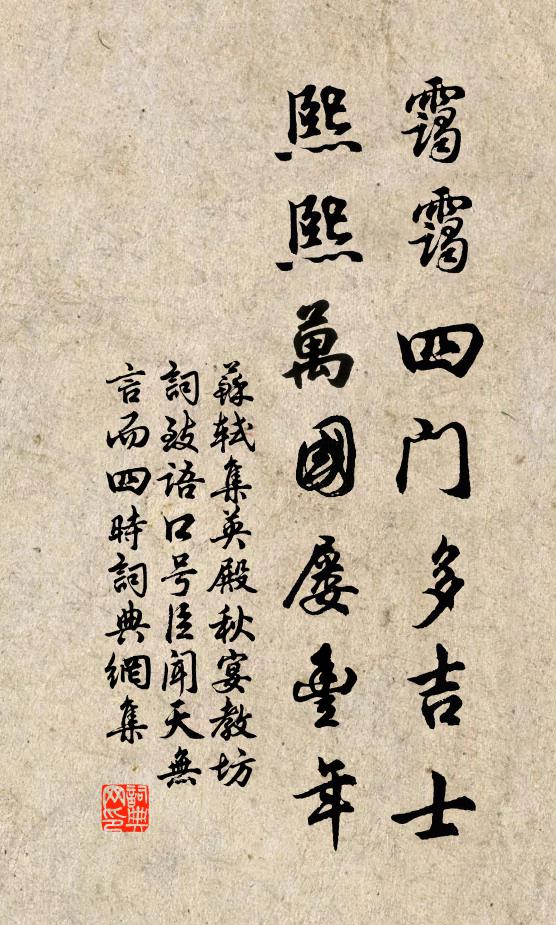 靄靄四門多吉士
熙熙萬國屡豐年
蘇軾集英殿秋宴教坊
詞致語口号臣聞天無
言而四時詞典網集
詞典
网印